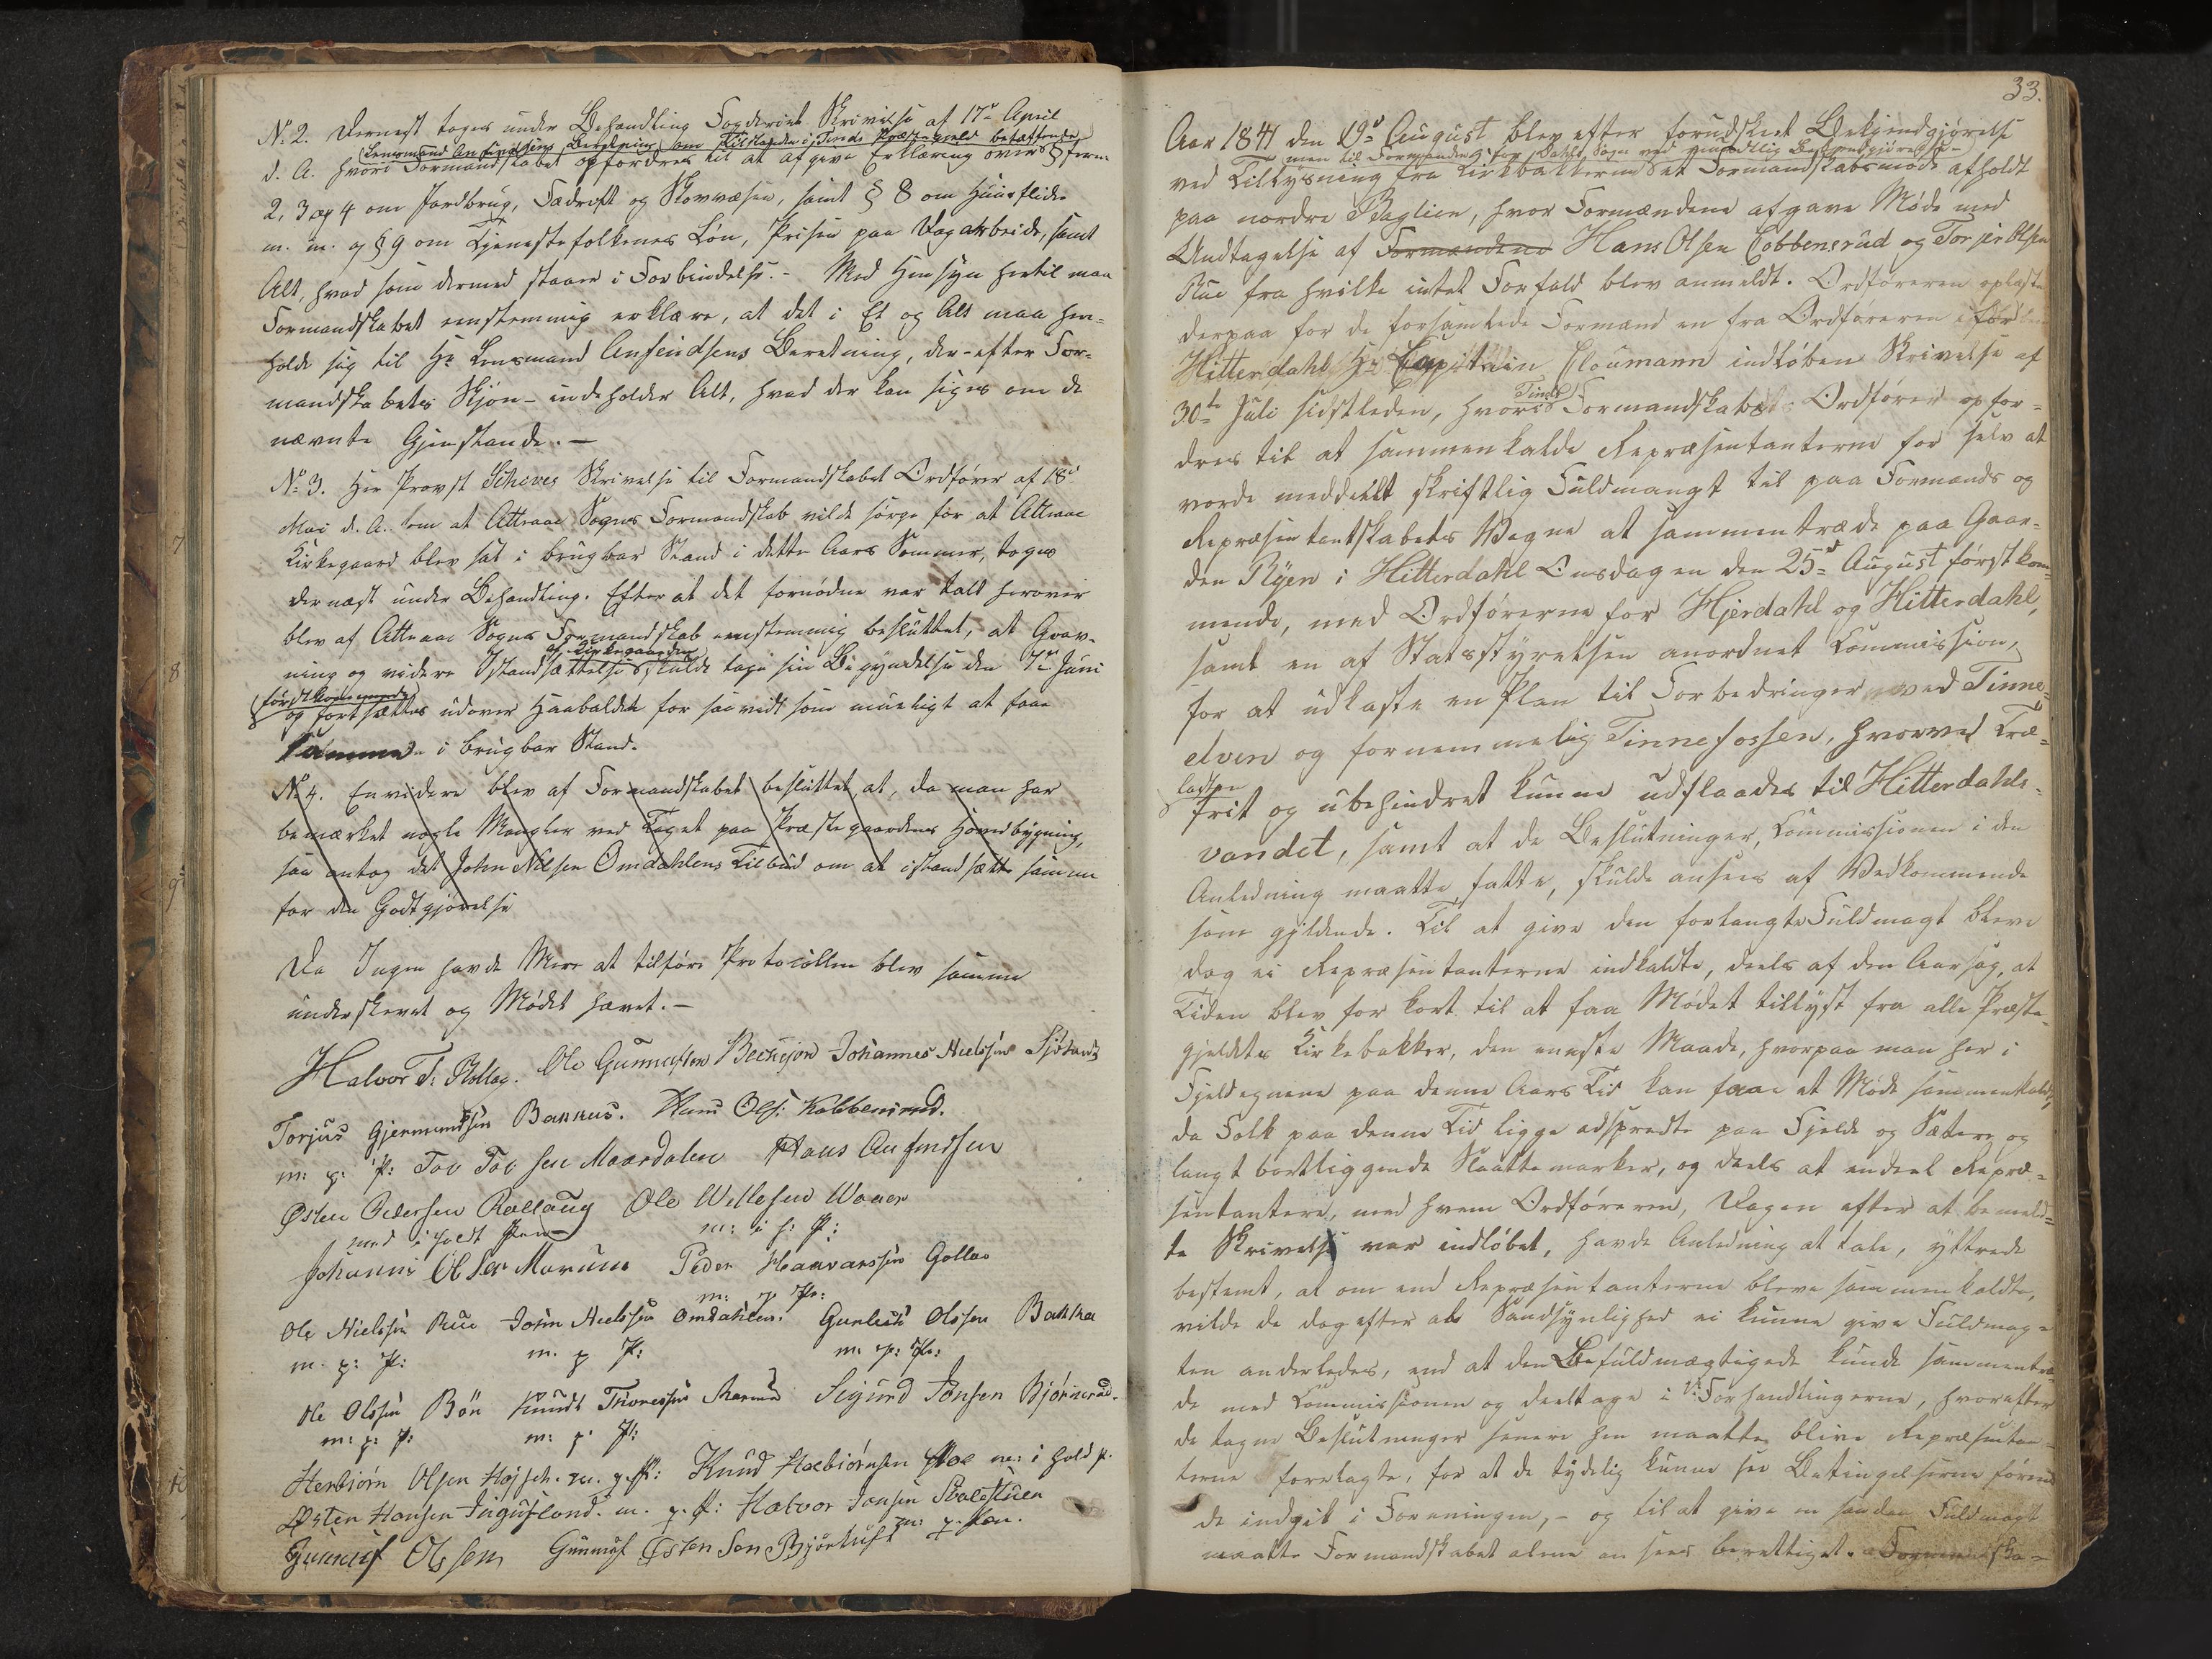 No 2. Dernest toges under Behandling Fogderiet Skrivelse af 17de April
Lensmand Anfindsens Beretning om Tilstanden i Tinds Præstegjeld betæffende
d. A. hvori Formandskabet opfordres til at afgive Erklæring over § ferne
2, 3 og 4 om Jordbrug, Fædrift og Skovvæsen, samt § 8 om Huusflid
m. m. og § 9 om Tjenestefolkenes Løn, Prisen paa Dagarbeide, samt
Alt, hvad som dermed staaer i Forbindelse. - Med Hensyn hertil maa
Formandskabet eenstemmig erklære, at det i Et og Alt maa hen=
holde sig til Hr Lensmand Anfindsens Beretning, der - efter For=
mandskabets Skjøn - indeholder Alt, hvad der kan siges om de
nævnte Gjenstande. -
No 3. Herr Provst Schives Skrivelse til Formandskabet Ordfører af 18de
Mai d. A. om at Attraae Sogns Formandskab vilde sørge for at Attraae
Kirkegaard blev sat i brugbar Stand i dette Aars Sommer, toges
dernæst under Behandling. Efterat det fornødne var talt herover
blev af Attraae Sogns Formandskab eenstemmig besluttet, at Grav-
af Kirkegaarden
ning og videre Istandsættelse skulde tage sin Begyndelse den 7de Juni
førstkommende
og fortsættes udover Haaballen for saavidt som mueligt at faae
samme i brugbar Stand.
No 4. Envidere blev af Formandskabet besluttet, at, da man har
bemærket nogle Mangler ved Taget paa Præstegaardens Hovedbygning,
saa antog det John Nilsen Omdahlens Tilbud om at istandsætte samme
for den Godtgjørelse
Da Ingen havde Mere at tilføre Protocollen blev samme
underskrevet og Mødet hævet. -
Halvor T: Rollag. Ole Gunnulfsen Bechejon Johannes Nielsen
Torjus Gjermundsen Bakkus. Hans Ols: Kobbenrud.
m: p: P: Tov Tov sen Maardalen Hans Anfindsen
Østen Pedersen Rollaug Ole Willesen Waaer
med i holdt Pen m: i h: P:
Johannis Olsen Marum Peder Haavarssen Gollas
m. p Pn:
Ole Nielsen Rue John Nielsen Omdahlen. Gunleik Olssen Bakka
m. p: P: m. p P: m. p: Pn:
Ole Olssen Bøn Knudt Thoressen Marum Sigurd Jonsen Bjørnerud.
m: p: P: m: p: P:
Herbiørn Olsen m. p. P: Knud Herbiørnsen m: i hold P.
Østen Hansen Ingulfsland. m. p. P: Halvor Jansen
m: p. Pen.
Gunnuf Olssen Gunnuf Østensen Bjørtuft
33.
Aar 1841 den 19de August blev efter forudskeet Bekjendgjørelse
men til Formændene for Dahls Sogn ved mundtlig Bekjendtgjørelse -
ved Tillysning fra Kirkebakkerne et Formandskabsmøde afholdt
paa nordre Baglien, hvor Formændene afgave Møde med
Undtagelse af Formændene Hans Olsen Cobbenerud og Torjer Olsen
Rue fra hvilke intet Forfald blev anmeldt. Ordføreren oplæste
derpaa for de forsamlede Formænd en fra Ordføreren for
Hitterdahl Hr Capitain Cloumann indløben Skrivelse af
Tinds
30te Juli sidstleden, hvori Formandskabets Ordfører opfor=
dres til at sammenkalde Repræsentanterne for selv at
vorde meddeelt skriftlig Fuldmagt til paa Formands og
Repræsentantskabets Vegne at sammentræde paa Gaar=
den Ryen i Hitterdahl Onsdagen den 25de August førstkom=
mende, med Ordførerne for Hjerdahl og Hitterdahl,
samt en af Statsstyrelsen anordnet Commission,
for at udkaste en Plan til Forbedringer ved Tinne=
elven og fornemmelig Tinnefossen, hvorved Træ=
lasten
frit og ubehindret kunne udflaades til Hitterdahls=
vandet, samt at de Beslutninger, Commissionen i den
Anledning maatte fatte, skulde ansees af Vedkommende
som gjeldende. Til at give den forlangte Fuldmagt bleve
dog ei Repræsentanterne indkaldte, deels af den Aarsag, at
Tiden blev for kort til at faa Mødet tillyst fra alle Præste=
gjeldets Kirkebakker, den eneste Maade, hvorpaa man her i
Fjeldegnene paa denne Aars Tid kan faae et Møde sammenkaldt,
da Folk paa denne Tid ligge adspredte paa Fjelde og Sætere og
langt bortliggende Slaattemarker, og deels at endeel Repræ=
sentantere, med hvem Ordføreren, Dagen efter at bemeld=
te Skrivelse var indløbet, havde Anledning at tale, yttrede
bestemt, at om end Repræsentanterne bleve sammenkaldte,
vilde de dog efter al Sandsynlighed ei kunne give Fuldmag=
ten anderledes, end at den Befuldmægtigede kunde sammentræ=
de med Commissionen og deeltage i Forhandlingerne, hvorefter
de tagne Beslutninger senere hen maatte blive Repræsentan=
terne forelagte, for at de tydelig kunne see Betingelserne førend
de indgik i Foreningen, - og til at give en saadan Fuldmagt
maatte Formandskabet alene an sees berettiget.